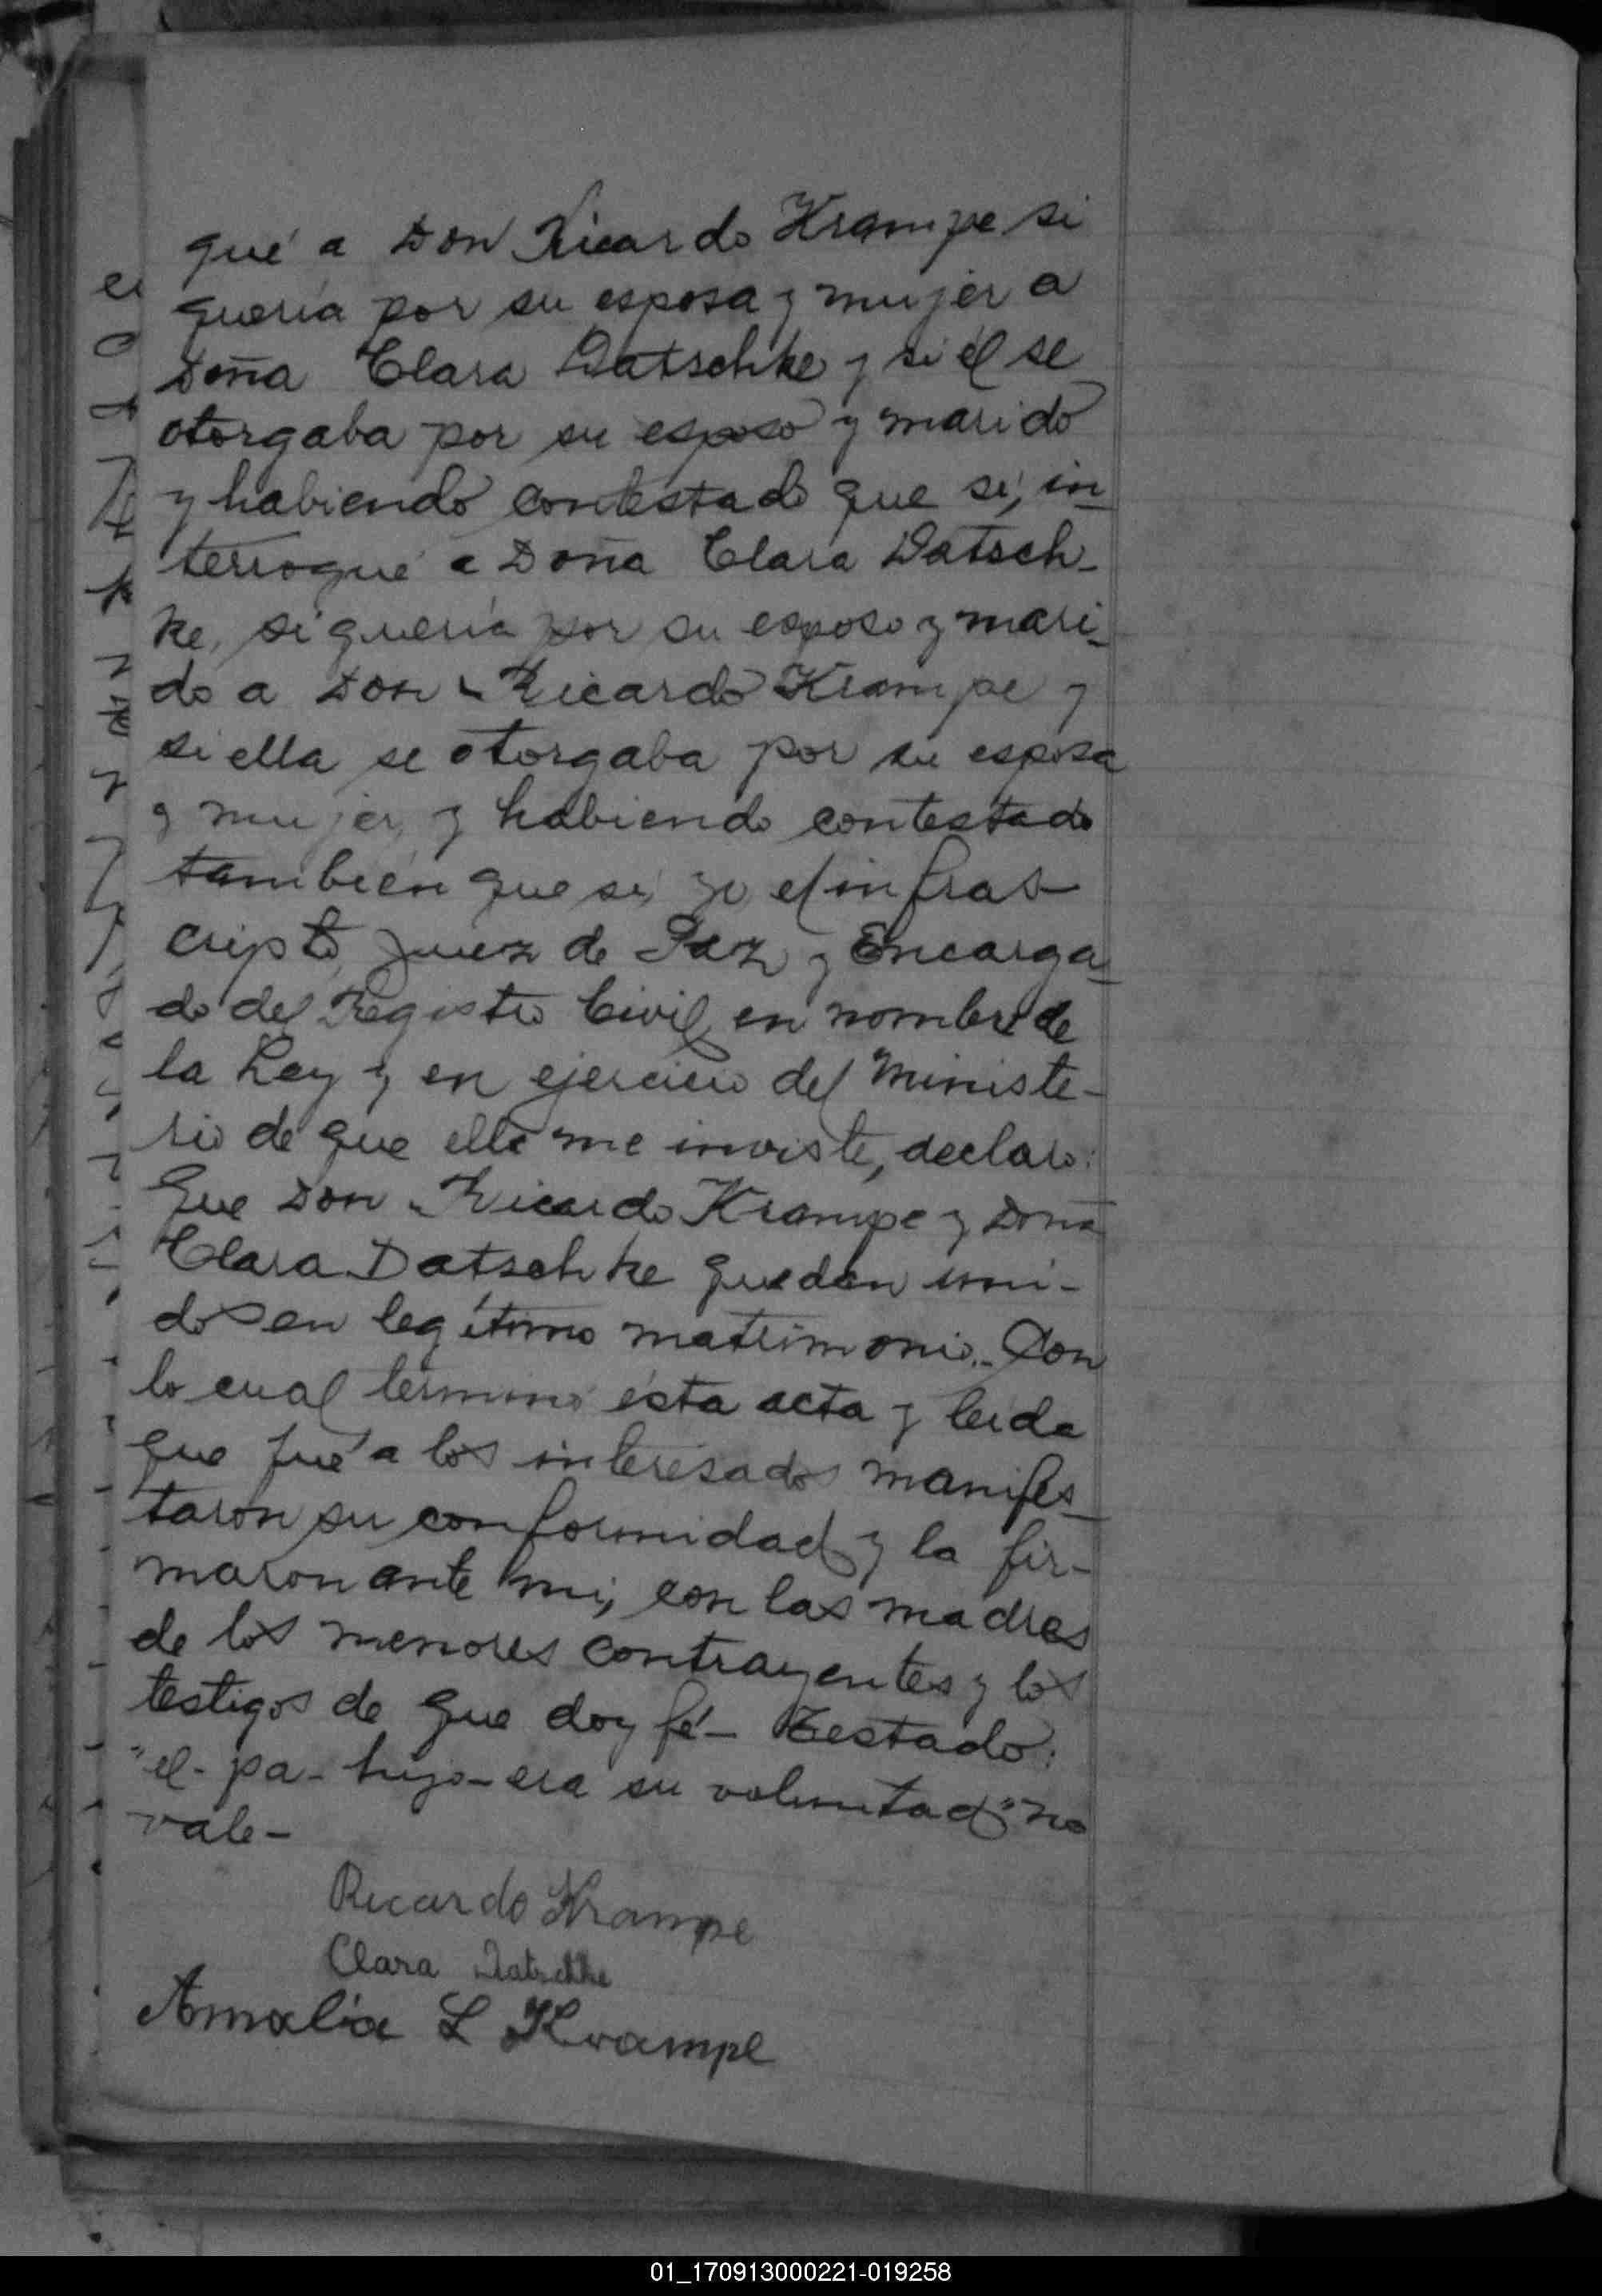 qué a Don Ricardo Krampe si
quería por su esposa y mujer a
Doña Clara Datschke y si él se
otorgaba por su esposo y marido
y habiendo contestado que sí, in-
terrogué a Doña Clara Datsch-
ke, si quería por su esposo y mari-
do a Don Ricardo Krampe y
si ella se otorgaba por su esposa
y mujer, y habiendo contestado
también que sí, yo, el infras-
cripto, Juez de Paz y Encarga-
do del Registro Civil, en nombre de
la Ley y en ejercicio del Ministe-
rio de que ella me inviste, declaro:
Que Don Ricardo Krampe y Doña
Clara Datschke quedan uni-
dos en legítimo matrimonio.- Con
lo cual terminó ésta acta y leida
que fué a los interesados manifes-
taron su conformidad y la fir-
maron ante mi, con las madres
de los menores contrayentes y los
testigos de que doy fé- Testado:
"el-pa-hijo-era su voluntad" no
vale-
Ricardo Krampe
Clara Datschke
Amalia L Krampe
01_170913000221-019258